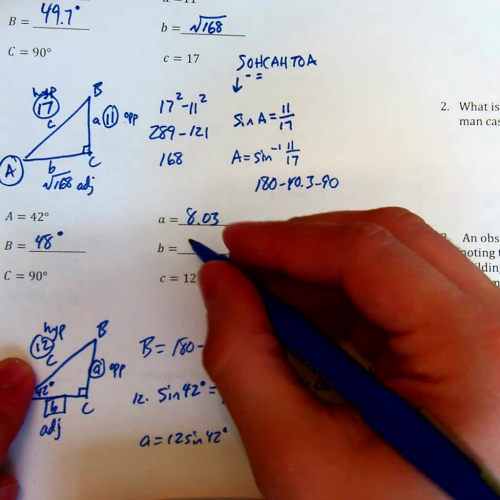 B = 49.7°
b = √168
C = 90°
c = 17
SOHCAHTOA
hyp
17
c
B
a 11 opp
A
b
C
√168 adj
17² - 11²
289 - 121
168
sin A = 11/17
A = sin⁻¹ 11/17
180 - 40.3 - 90
2. What is
man cas
A = 42°
a = 8.03
B = 48°
b =
C = 90°
c = 12
An obs
noting t
hyp
12
c
B
a opp
42°
b
C
adj
B = 180 -
12 · sin 42° =
a = 12 sin 42°